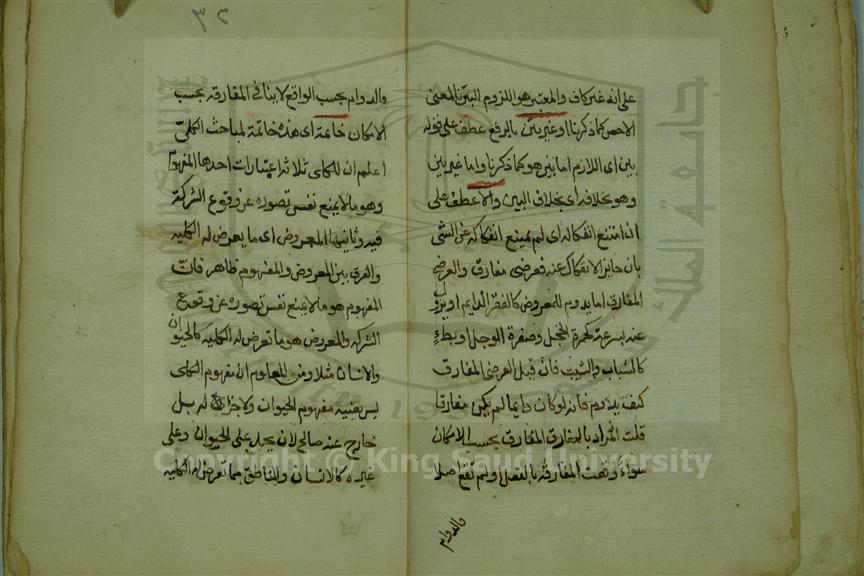 على انه غير كاف والمعتبر هو اللزوم البين بالمعنى
الاخص كما ذكرنا او غير بين بالرفع عطف على قوله
بين اى اللازم اما بين هو كما ذكرنا واما غير بين
وهو بخلافه اى بخلاف البين والا عطف على
ان امتنع انفكاكه اى لم يمتنع انفكاكه عن الشى
بان جايز الانفكاك عنه فعرضى مفارق والعرضى
المفارق اما يدوم للمعروض كالفقر الدايم او يزول
عنه بسرعة كحمرة الخجل وصفرة الوجل او بطاء
كالشباب والشيب فان قيل العرضى المفارق
كيف يدوم فانه لو كان دايما لم يكن مفارقا
قلت المراد بالمفارق المفارق بحسب الامكان
سواء وقعت المفارقة بالفعل او لم تقع اصلا
والدوام
٣٢
والدوام بحسب الواقع لا ينافى المفارقة بحسب
الامكان خاتمة اى هذه خاتمة لمباحث الكلى
اعلم ان للكلى ثلاث اعتبارات احدها المفهوم
وهو ما لا يمنع نفس تصوره عن وقوع الشركة
فيه وثانيها المعروض اى ما يعرض له الكلية
والفرق بين المعروض والمفهوم ظاهر فان
المفهوم هو ما لا يمنع نفس تصوره عن وقوع
الشركة والمعروض هو ما تعرض له الكلية كالحيوان
والانسان مثلا ومن المعلوم ان مفهوم الكلى
ليس بعينه مفهوم الحيوان ولا جزا له بل
خارج عنه صالح لان يحمل على الحيوان وعلى
غيره كالانسان والناطق مما تعرض له الكلية
جامعة الملك سعود
Copyright © King Saud University